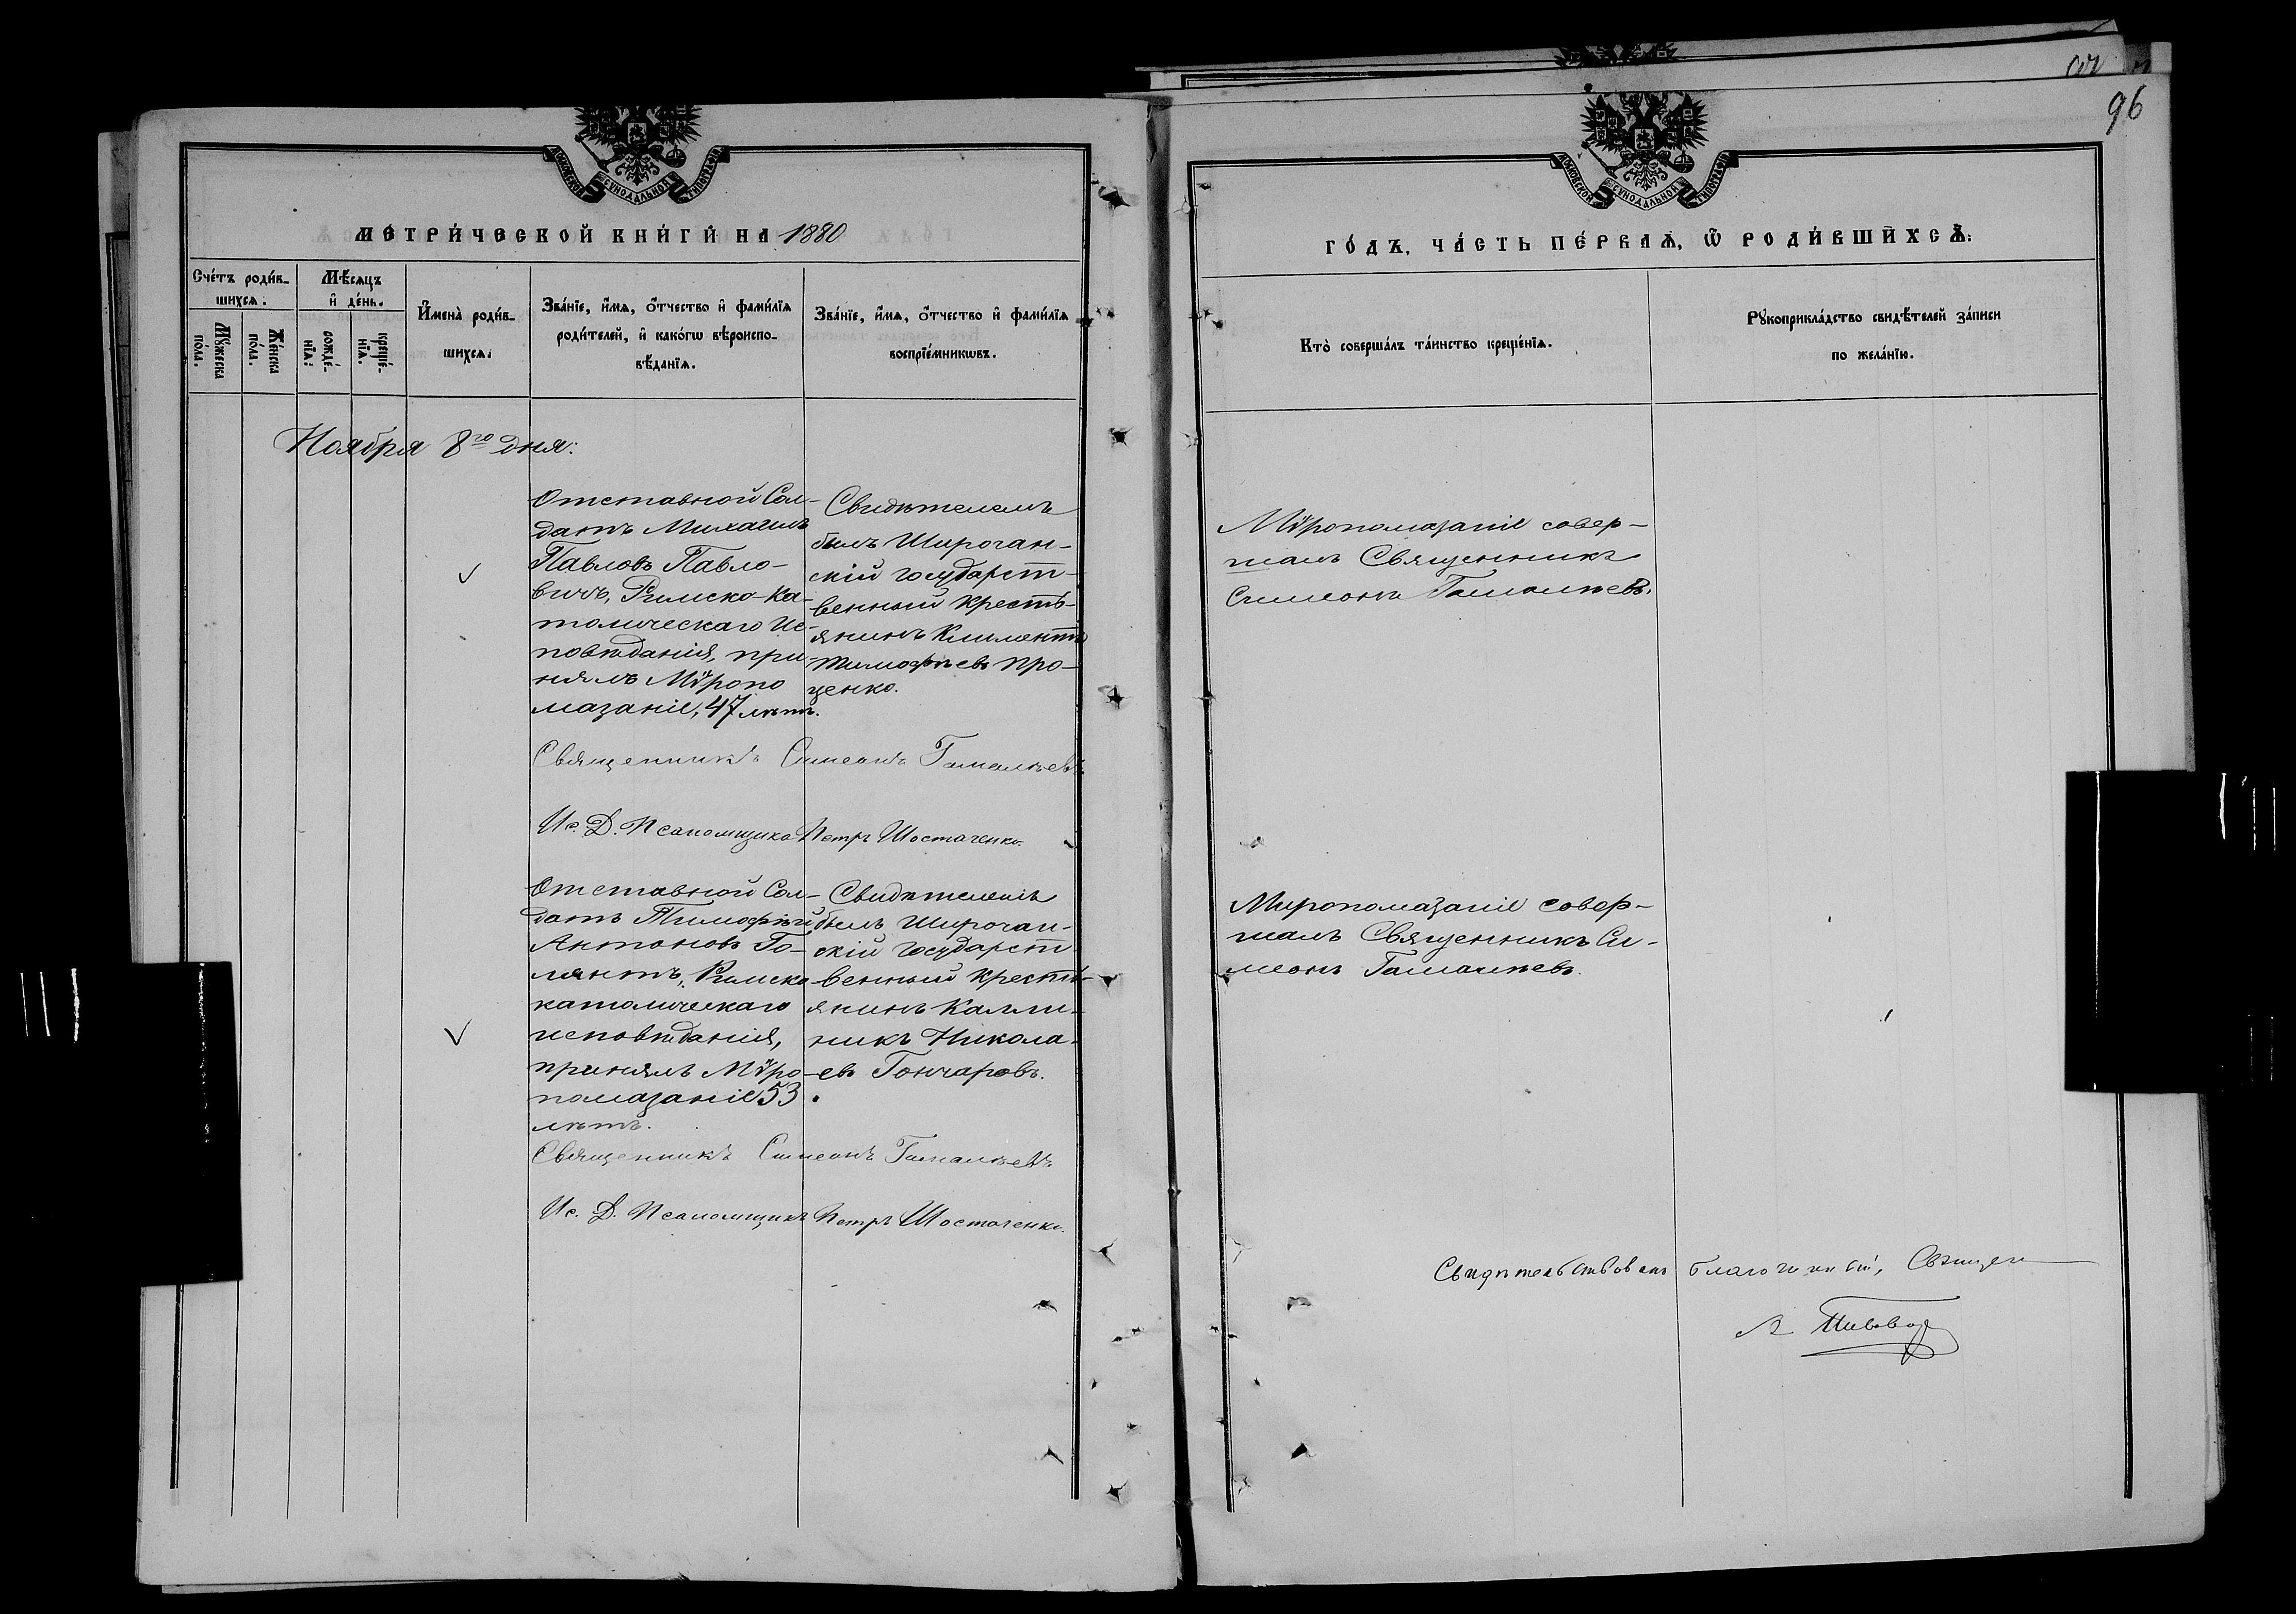 96
МОСКОВСКОЙ СѴНОДАЛЬНОЙ ТИПОГРАФІИ
МЕТРИ́ЧЕСКОЙ КНИ́ГИ НА 1880
Сче́тъ роди́в-
шихсѧ.
Мѣ́сѧцъ
и҆ де́нь.
Мꙋ́жеска
по́ла.
Же́нска
по́ла.
рожде́-
нїѧ.
креще́-
нїѧ.
И҆мена̀ роди́в-
шихсѧ.
Зва́нїе, и҆́мѧ, ѻ҆́тчество и҆ фами́лїѧ
роди́телей, и҆ како́гѡ вѣроиспо-
вѣ́данїѧ.
Зва́нїе, и҆́мѧ, ѻ҆́тчество и҆ фами́лїѧ
воспрїе́мникѡвъ.
Ноября 8го дня:
Отставной Сол-
датъ Михаилъ
Павловъ Павло-
вичъ, Римско-Ка-
толическаго Ис-
повѣданія, при-
нялъ Мѵропо
мазаніе, 47 лѣтъ.
Свидѣтелемъ
былъ Широчан-
скій государст-
венный кресть-
янинъ Климентъ
Тимофѣевъ Про-
ценко.
Священникъ Симеонъ Гамалѣевъ
Ис. Д. Псаломщика Петръ Шостаченко.
Отставной Сол-
датъ Тимофѣй
Антоновъ Го-
лянтъ, Римско
католическаго
исповѣданія,
принялъ Мѵро-
помазаніе 53
лѣтъ.
Свидѣтелемъ
былъ Широчан-
скій государст
венный кресть-
янинъ Калли-
никъ Никола-
евъ Гончаровъ.
Священникъ Симеонъ Гамалѣевъ
Ис. Д. Псаломщикъ Петръ Шостаченко.
МОСКОВСКОЙ СѴНОДАЛЬНОЙ ТИПОГРАФІИ
ГО́ДЪ, ЧА́СТЬ ПЕ́РВАѦ, Ѿ РОДИ́ВШИХСѦ.
Кто̀ соверша́лъ та́инство креще́нїѧ.
Рꙋкоприкла́дство свидѣ́телей за́писи
по жела́нїю.
Мѵропомазаніе совер-
шалъ Священникъ
Симеонъ Гамалѣевъ.
Миропомазаніе совер-
шалъ Священникъ Си-
меонъ Гамалѣевъ.
Свидѣтельствовалъ благочинный, Священ